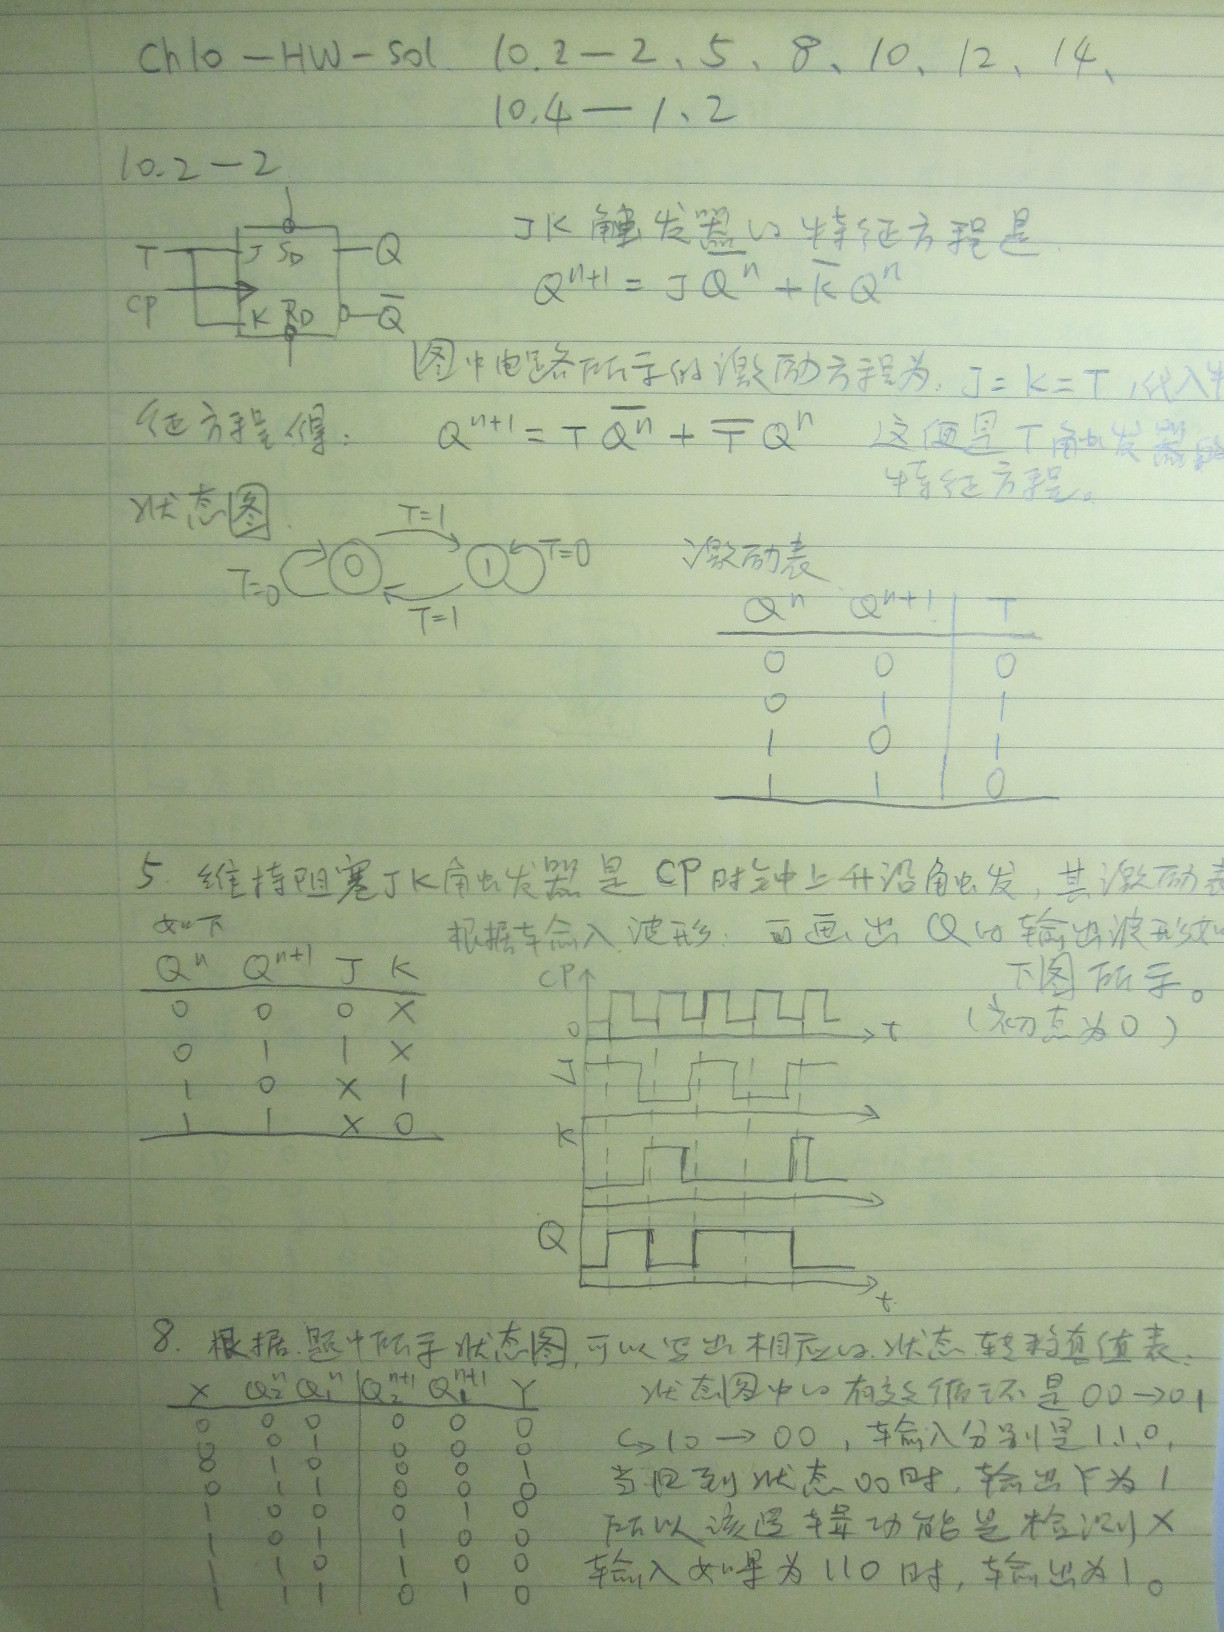 Ch10-HW-Sol 10.2-2、5、8、10、12、14、
10.4-1、2
10.2-2
T J S̄D Q
CP
K R̄D Q̄
JK触发器的特征方程是
Qⁿ⁺¹ = J Q̄ⁿ + K̄ Qⁿ
图中电路所示的激励方程为：J=K=T,代入特
征方程得： Qⁿ⁺¹ = T Q̄ⁿ + T̄ Qⁿ 这便是T触发器的
特征方程。
状态图
T=0 0 T=1 T=1 1 T=0
激励表
Qⁿ Qⁿ⁺¹ T
0 0 0
0 1 1
1 0 1
1 1 0
5. 维持阻塞JK触发器是CP时钟上升沿触发，其激励表
如下 根据输入波形，可画出Q的输出波形如
下图所示。
(初态为0)
Qⁿ Qⁿ⁺¹ J K
0 0 0 X
0 1 1 X
1 0 X 1
1 1 X 0
CP
0 t
J
K
Q
t
8. 根据题中所示状态图,可以写出相应的状态转移真值表.
X Q₂ⁿ Q₁ⁿ Q₂ⁿ⁺¹ Q₁ⁿ⁺¹ Y
0 0 0 0 0 0
0 0 1 0 0 0
0 1 0 0 0 1
0 1 1 0 0 0
1 0 0 0 1 0
1 0 1 1 0 0
1 1 0 1 0 0
1 1 1 0 1 0
状态图中的有效循环是00→01
↪10→00，输入分别是1.1.0,
当回到状态00时，输出Y为1
所以该逻辑功能是检测X
输入如果为110时，输出为1。